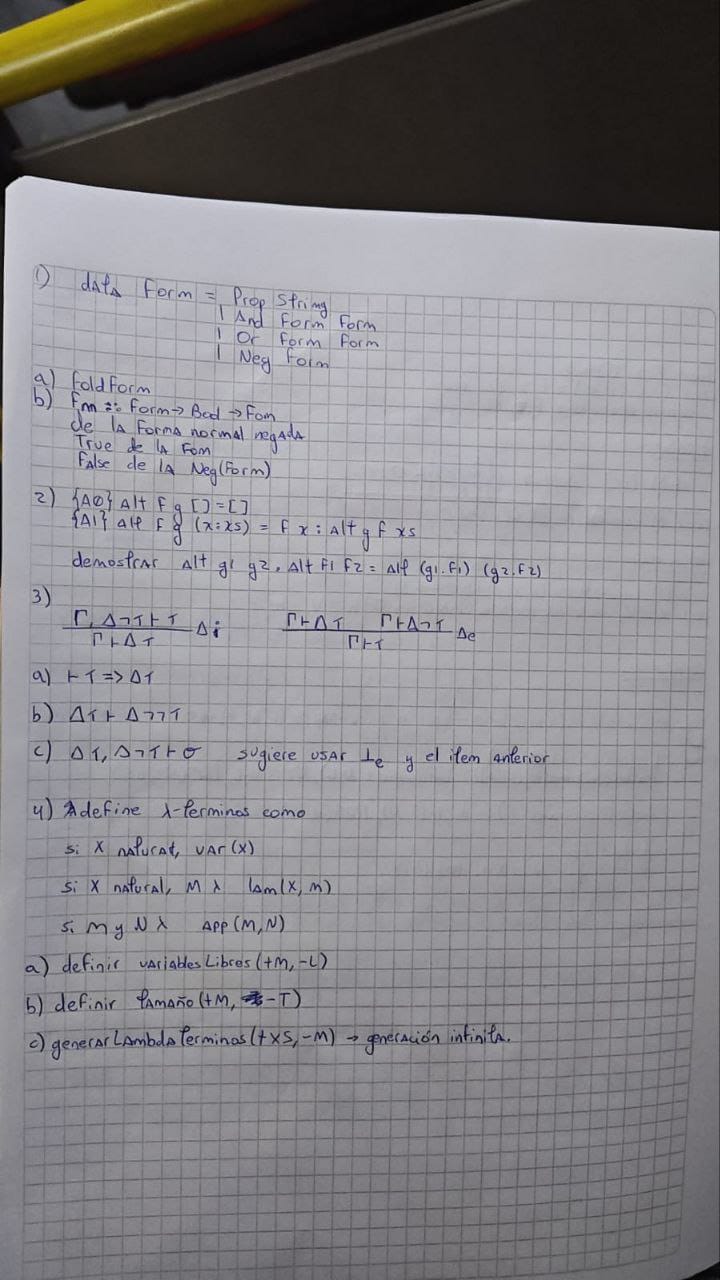 1) data Form = Prop String
| And Form Form
| Or Form Form
| Neg Form
a) foldForm
b) Fnn :: Form → Bool → Fom
de la Forma normal negada
True de la Fom
False de la Neg(Form)
2) {A0} Alt f g [] = []
{A1} alt f g (x:xs) = f x : Alt g f xs
demostrar Alt g1 g2 . Alt f1 f2 = Alt (g1.f1) (g2.f2)
3)
Γ, Δ¬τ ⊢ τ / Γ ⊢ Δτ Δi Γ ⊢ Δτ Γ ⊢ Δ¬τ / Γ ⊢ τ Δe
a) ⊢ τ => Δτ
b) Δτ ⊢ Δ¬¬τ
c) Δτ, Δ¬τ ⊢ σ sugiere usar ⊥e y el item anterior
4) define λ-terminos como
si X natural, var(X)
si X natural, M λ lam(X, M)
si M y N λ App(M,N)
a) definir variablesLibres(+M,-L)
b) definir tamaño(+M, -T)
c) generarLambdaTerminos(+XS,-M) → generación infinita.